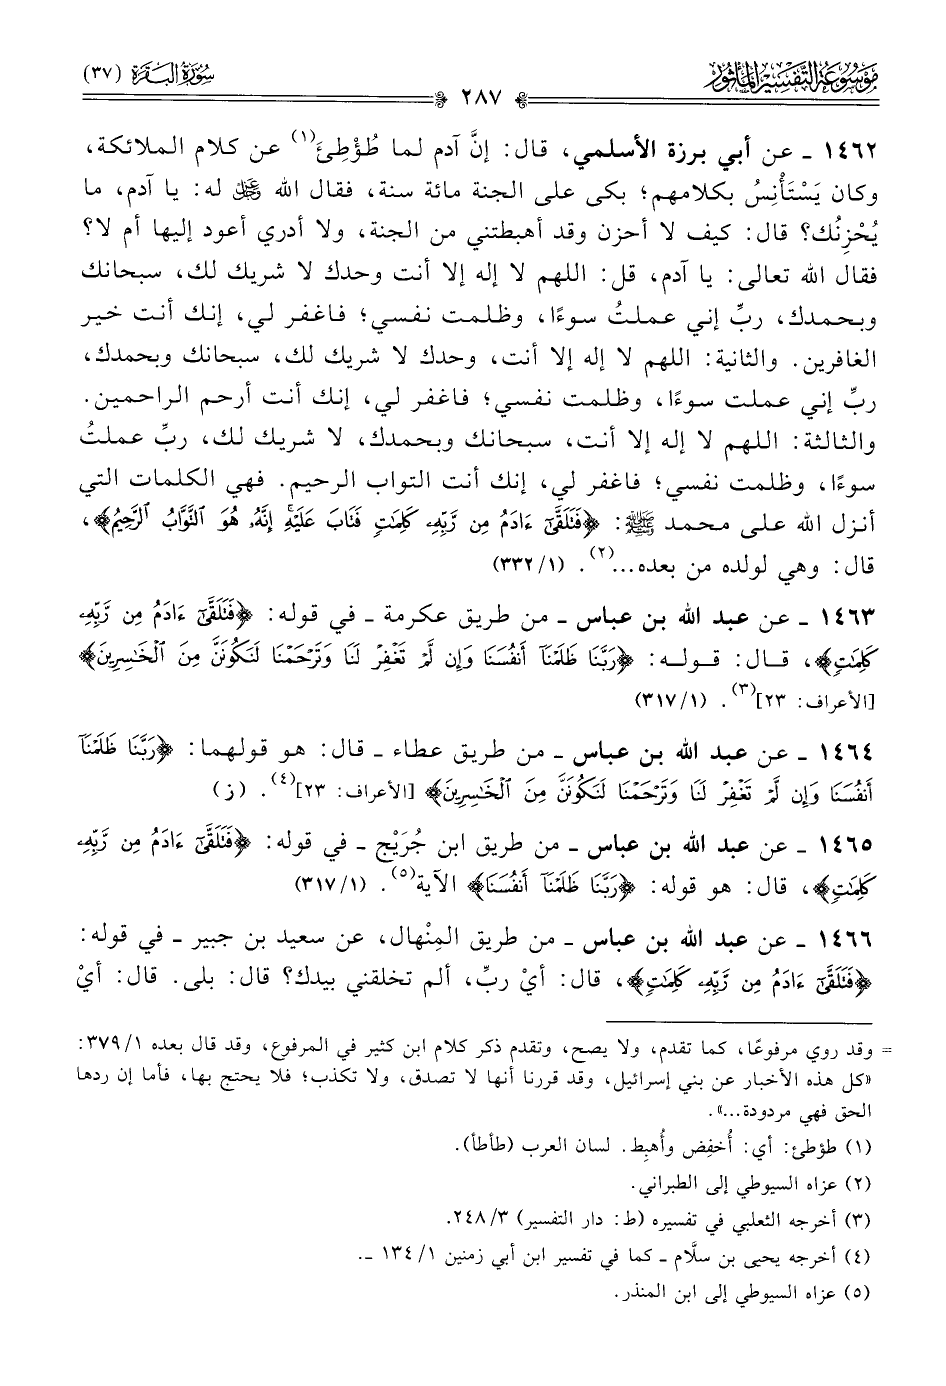 موسوعة التفسير المأثور
٢٨٧
سورة البقرة (٣٧)
١٤٦٢ ـ عن أبي برزة الأسلمي، قال: إنَّ آدم لما طُؤْطِئَ(١) عن كلام الملائكة،
وكان يَسْتَأْنِسُ بكلامهم؛ بكى على الجنة مائة سنة، فقال الله ﷻ له: يا آدم، ما
يُحْزِنُك؟ قال: كيف لا أحزن وقد أهبطتني من الجنة، ولا أدري أعود إليها أم لا؟
فقال الله تعالى: يا آدم، قل: اللهم لا إله إلا أنت وحدك لا شريك لك، سبحانك
وبحمدك، ربِّ إني عملتُ سوءًا، وظلمت نفسي؛ فاغفر لي، إنك أنت خير
الغافرين. والثانية: اللهم لا إله إلا أنت، وحدك لا شريك لك، سبحانك وبحمدك،
ربِّ إني عملت سوءًا، وظلمت نفسي؛ فاغفر لي، إنك أنت أرحم الراحمين.
والثالثة: اللهم لا إله إلا أنت، سبحانك وبحمدك، لا شريك لك، ربِّ عملتُ
سوءًا، وظلمت نفسي؛ فاغفر لي، إنك أنت التواب الرحيم. فهي الكلمات التي
أنزل الله على محمد ﷺ: ﴿فَتَلَقَّىٰٓ ءَادَمُ مِن رَّبِّهِۦ كَلِمَٰتٖ فَتَابَ عَلَيۡهِۚ إِنَّهُۥ هُوَ ٱلتَّوَّابُ ٱلرَّحِيمُ﴾،
قال: وهي لولده من بعده...(٢). (١/ ٣٣٢)
١٤٦٣ ـ عن عبد الله بن عباس ـ من طريق عكرمة ـ في قوله: ﴿فَتَلَقَّىٰٓ ءَادَمُ مِن رَّبِّهِۦ
كَلِمَٰتٖ﴾، قال: قوله: ﴿رَبَّنَا ظَلَمۡنَآ أَنفُسَنَا وَإِن لَّمۡ تَغۡفِرۡ لَنَا وَتَرۡحَمۡنَا لَنَكُونَنَّ مِنَ ٱلۡخَٰسِرِينَ﴾
[الأعراف: ٢٣](٣). (١/ ٣١٧)
١٤٦٤ ـ عن عبد الله بن عباس ـ من طريق عطاء ـ قال: هو قولهما: ﴿رَبَّنَا ظَلَمۡنَآ
أَنفُسَنَا وَإِن لَّمۡ تَغۡفِرۡ لَنَا وَتَرۡحَمۡنَا لَنَكُونَنَّ مِنَ ٱلۡخَٰسِرِينَ﴾ [الأعراف: ٢٣](٤). (ز)
١٤٦٥ ـ عن عبد الله بن عباس ـ من طريق ابن جُرَيْج ـ في قوله: ﴿فَتَلَقَّىٰٓ ءَادَمُ مِن رَّبِّهِۦ
كَلِمَٰتٖ﴾، قال: هو قوله: ﴿رَبَّنَا ظَلَمۡنَآ أَنفُسَنَا﴾ الآية(٥). (١/ ٣١٧)
١٤٦٦ ـ عن عبد الله بن عباس ـ من طريق المِنْهال، عن سعيد بن جبير ـ في قوله:
﴿فَتَلَقَّىٰٓ ءَادَمُ مِن رَّبِّهِۦ كَلِمَٰتٖ﴾، قال: أيْ ربِّ، ألم تخلقني بيدك؟ قال: بلى. قال: أيْ
= وقد روي مرفوعًا، كما تقدم، ولا يصح، وتقدم ذكر كلام ابن كثير في المرفوع، وقد قال بعده ١/ ٣٧٩:
«كل هذه الأخبار عن بني إسرائيل، وقد قررنا أنها لا تصدق، ولا تكذب؛ فلا يحتج بها، فأما إن ردها
الحق فهي مردودة...».
(١) طؤطئ: أي: أُخفِض وأُهبِط. لسان العرب (طأطأ).
(٢) عزاه السيوطي إلى الطبراني.
(٣) أخرجه الثعلبي في تفسيره (ط: دار التفسير) ٣/ ٢٤٨.
(٤) أخرجه يحيى بن سلَّام ـ كما في تفسير ابن أبي زمنين ١/ ١٣٤ ـ.
(٥) عزاه السيوطي إلى ابن المنذر.